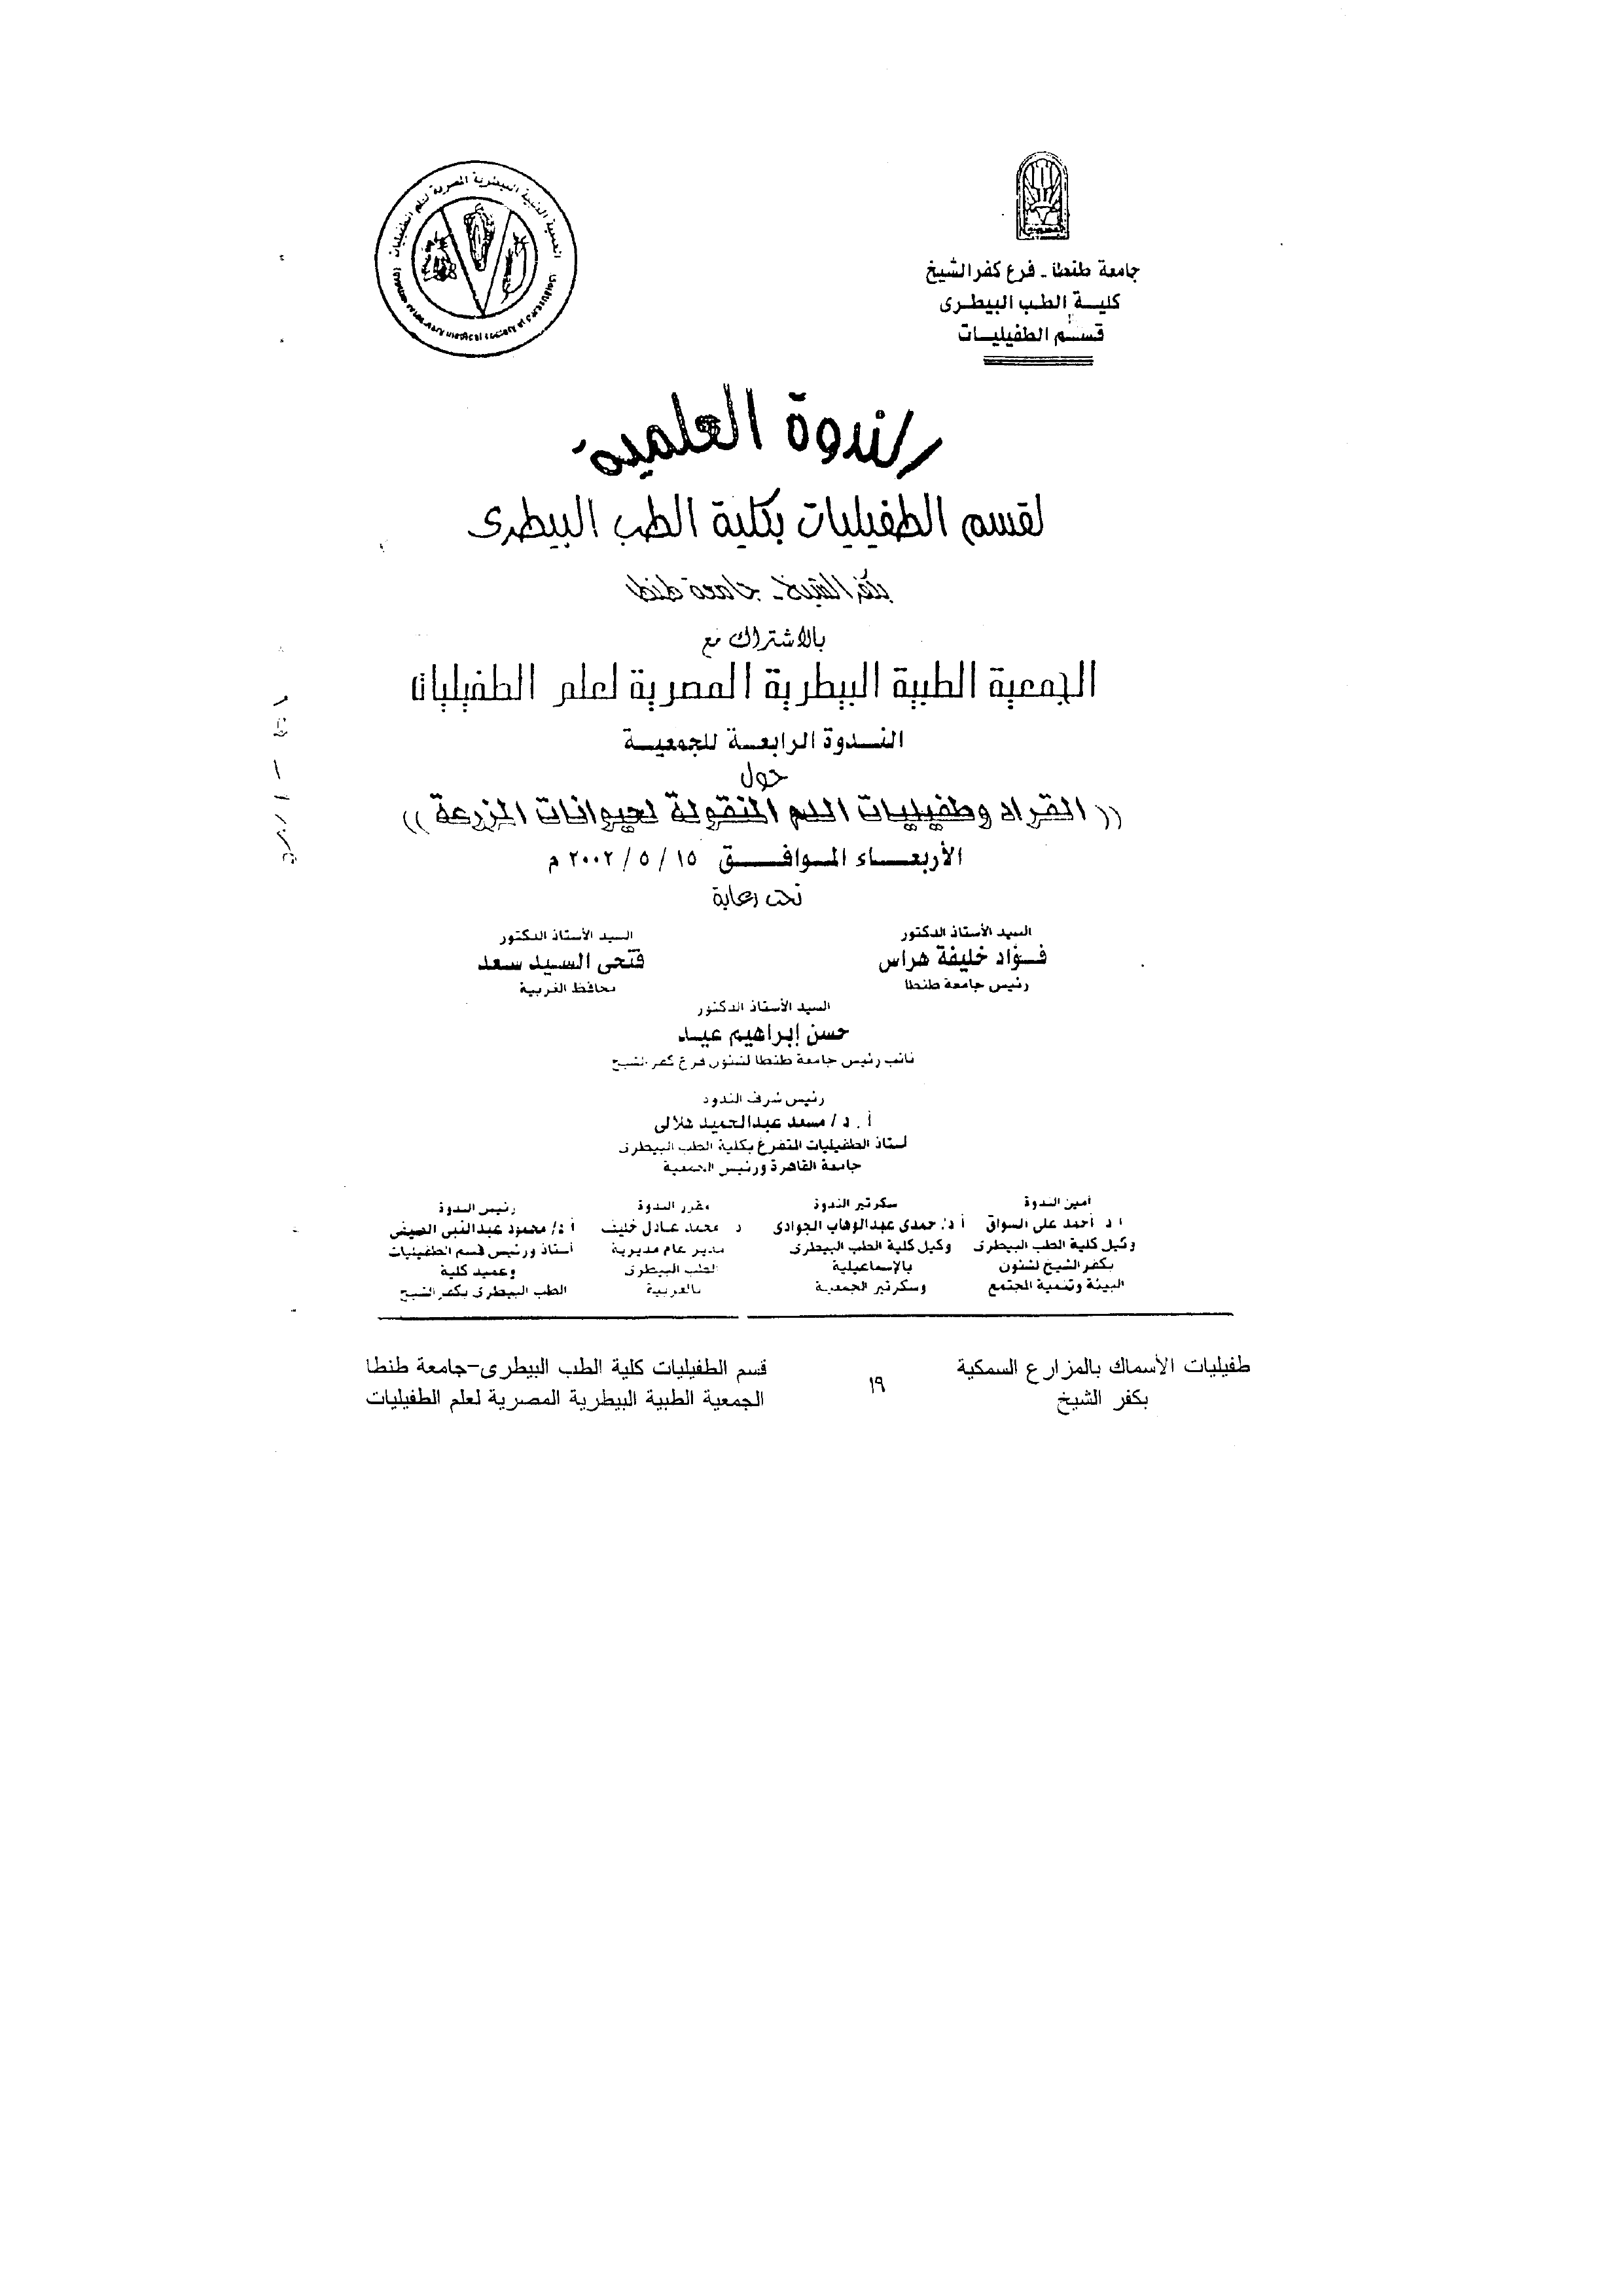 الجمعية الطبية البيطرية المصرية لعلم الطفيليات
medical society of parasitology
جامعة طنطا - فرع كفر الشيخ
كليــة الطب البيطـرى
قسـم الطفيليـات
الندوة العلمية
لقسم الطفيليات بكلية الطب البيطرى
بكفر الشيخ - جامعة طنطا
بالاشتراك مع
الجمعية الطبية البيطرية المصرية لعلم الطفيليات
النــدوة الرابعــة للجمعيــة
حول
(( القراد وطفيليات الدم المنقولة لحيوانات المزرعة ))
الأربعــاء الموافــق ١٥ / ٥ / ٢٠٠٢ م
تحت رعاية
السيد الأستاذ الدكتور
فــؤاد خليفة هراس
رئيس جامعة طنطا
السيد الأستاذ الدكتور
فتحى السـيد سـعد
محافظ الغربية
السيد الأستاذ الدكتور
حسن إبراهيم عيـد
نائب رئيس جامعة طنطا لشئون فرع كفر الشيخ
رئيس شرف الندوة
أ . د / مسعد عبدالحميد هلالى
أستاذ الطفيليات المتفرغ بكلية الطب البيطرى
جامعة القاهرة ورئيس الجمعية
أمين الندوة
أ د أحمد على السواق
وكيل كلية الطب البيطرى
بكفر الشيخ لشئون
البيئة وتنمية المجتمع
سكرتير الندوة
أ د/ حمدى عبدالوهاب الجوادى
وكيل كلية الطب البيطرى
بالإسماعيلية
وسكرتير الجمعية
مقرر الندوة
د محمد عـادل خليفـ
مدير عام مديرية
الطب البيطرى
بالغربية
رئيس الندوة
أ د/ محمود عبدالنبى الصيفى
أستاذ ورئيس قسم الطفيليات
وعميد كلية
الطب البيطرى بكفر الشيخ
طفيليات الأسماك بالمزارع السمكية
بكفر الشيخ
١٩
قسم الطفيليات كلية الطب البيطرى-جامعة طنطا
الجمعية الطبية البيطرية المصرية لعلم الطفيليات